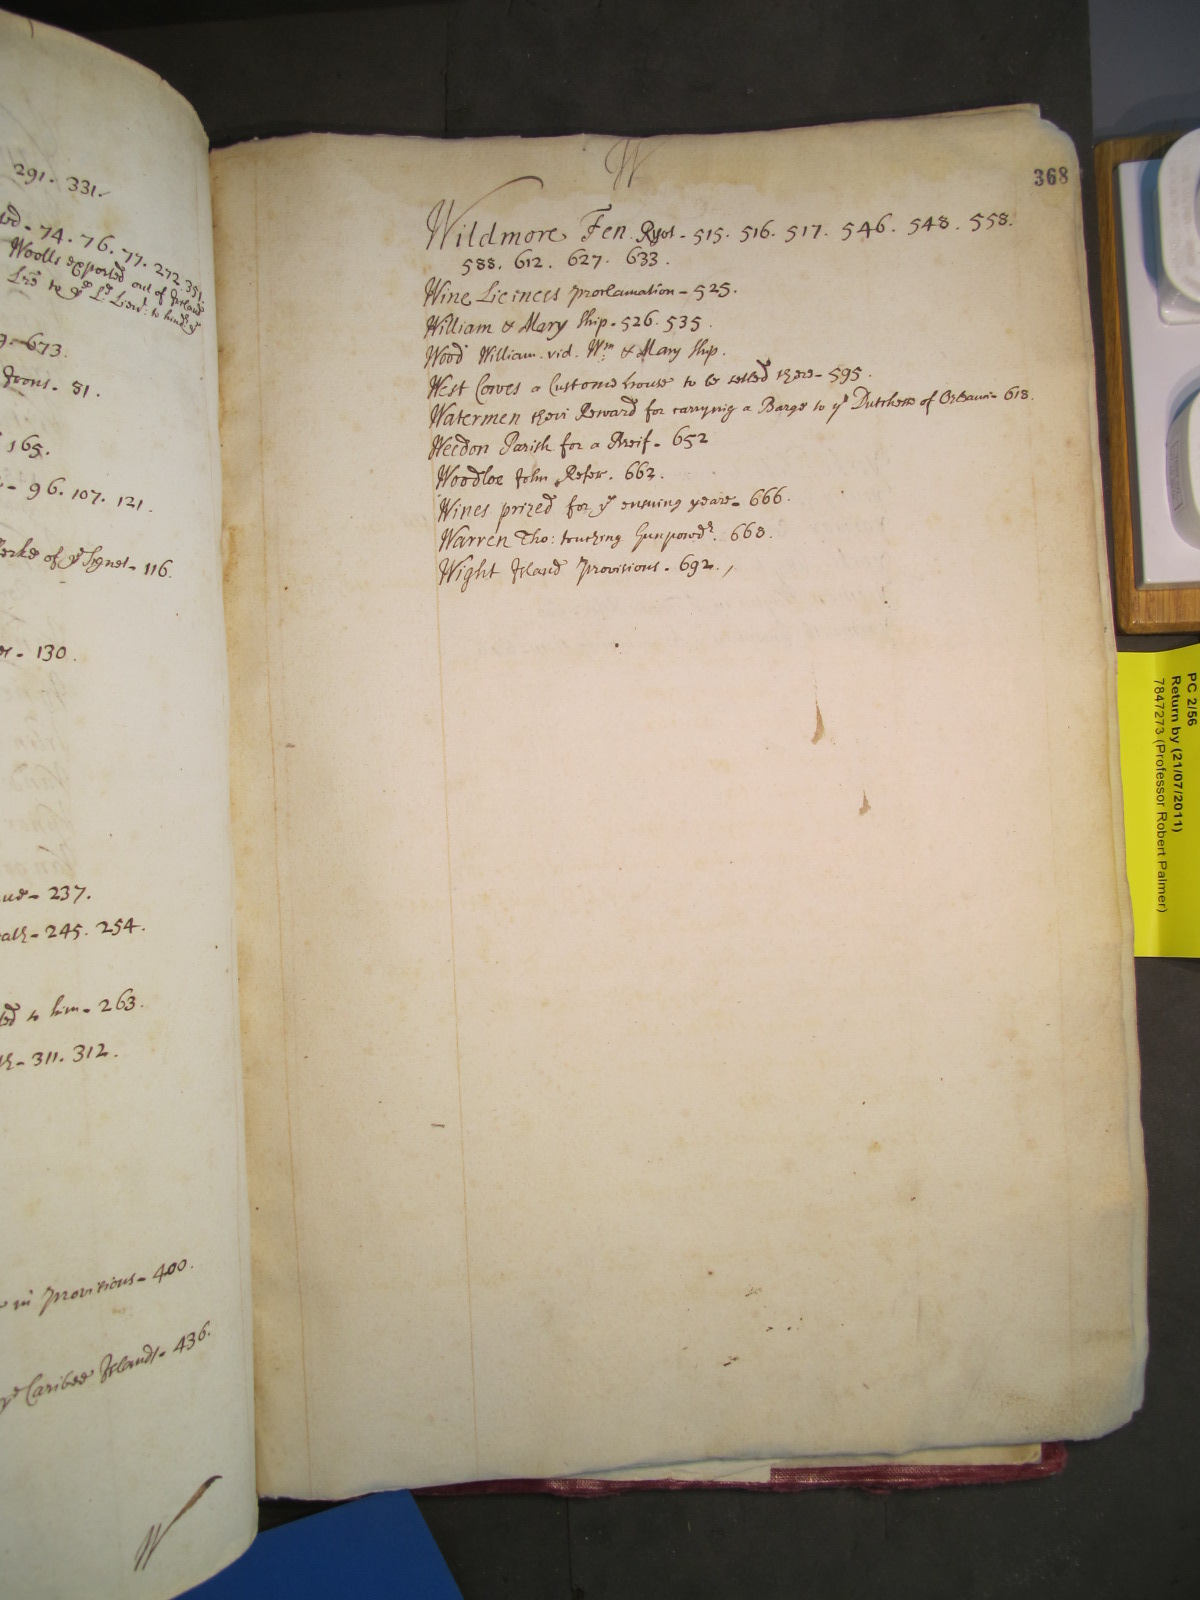 291. 331.
74. 76. 77. 272. 351.
Woolls exported out of Ireland
Lrs to ye Ld Lieut: to hinder yt
673.
Irons. 81.
165.
96. 107. 121.
Clerke of ye Signet. 116.
130.
237.
245. 254.
to him. 263.
311. 312.
in Provisions. 400.
ye Caribee Islands. 436.
W
W
368
Wildmore Fen Ryot. 515. 516. 517. 546. 548. 558.
588. 612. 627. 633.
Wine Licences Proclamation. 525.
William & Mary Ship. 526. 535.
Wood William. vid. Wm & Mary Ship.
West Cowes a Custome house to be setled there. 595.
Watermen their Reward for carrynig a Barge to ye Dutchess of Orleans. 618.
Weedon Parish for a Breif. 652
Woodloe John Refer. 662.
Wines prized for ye ensuing yeare. 666.
Warren Tho: touching Gunpowdr. 668.
Wight Island Provisions. 692.
PC 2/56
Return by (21/07/2011)
7847273 (Professor Robert Palmer)